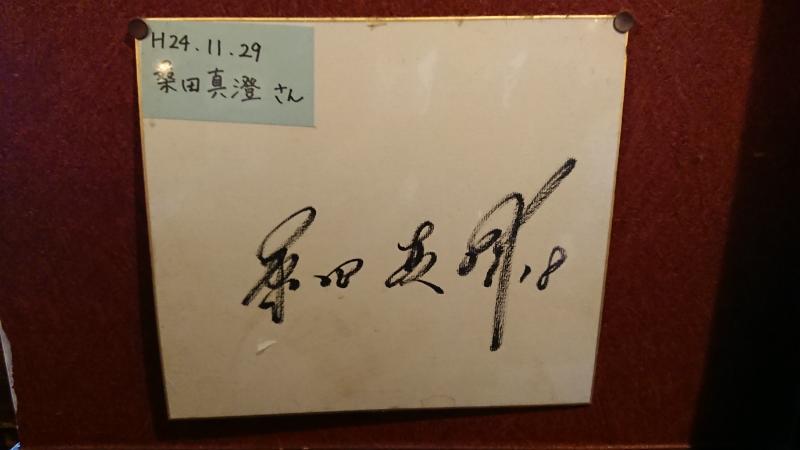 H24.11.29
桑田真澄さん
桑田真澄 18